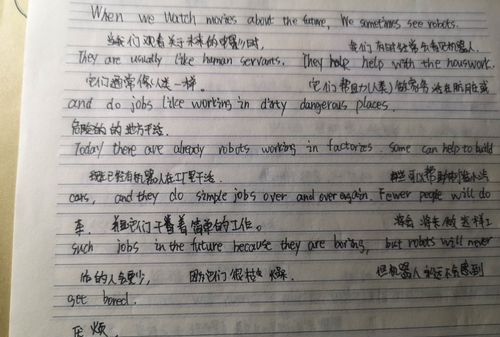 When we watch movies about the future, We sometimes see robots.
当我们观看关于未来的电影时, 我们有时经常会看见机器人.
They are usually like human servants. They help help with the houswork
它们通常像人类一样。 它们帮助(人类)做家务 或在肮脏或
and do jobs like working in dirty dangerous places.
危险的的地方干活.
Today there are already robots working in factories. some can help to build
机器人在工厂干活
cars, and they do simple jobs over and over again. Fewer people will do
车, 它们干着简单的工作。 将会
such jobs in the future because they are boring, but robots will never
的人会更少, 因为它们很枯燥 但机器人永远不会感到
get bored.
厌烦.